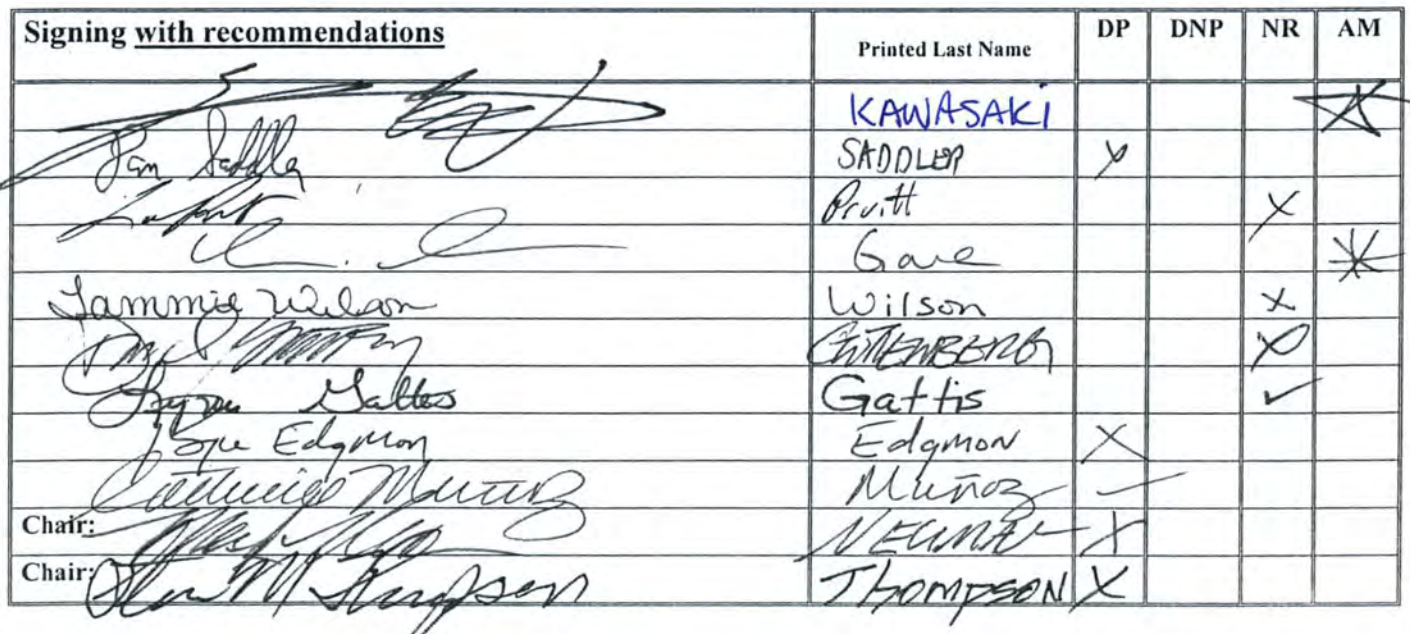 Signing with recommendations Printed Last Name DP DNP NR AM
KAWASAKI
Dan Saddler SADDLER X
Pruitt X
Gara
Tammie Wilson Wilson X
GUTTENBERG X
Lynn Gattis Gattis ✓
Bryce Edgmon Edgmon X
Cathy Muñoz Muñoz ✓
Chair: NEUMAN X
Chair: Steve M Thompson THOMPSON X